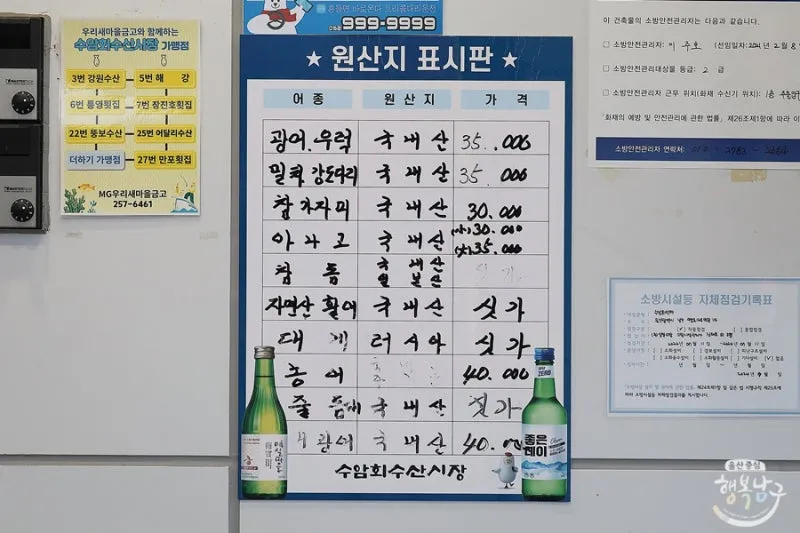 우리새마을금고와 함께하는
수암회수산시장 가맹점
3번 강원수산
5번 해 강
6번 통영횟집
7번 장진호횟집
22번 뚱보수산
25번 어달리수산
더하기 가맹점
27번 만포횟집
MG우리새마을금고
257-6461
999-9999
★ 원산지 표시판 ★
어종 원산지 가격
광어.우럭 국내산 35.000
밀치 강도다리 국내산 35.000
참가자미 국내산 30.000
아나고 국내산 (小)30.000
(大)35.000
참 돔 국내산
일본산
자연산 활어 국내산 싯가
대 게 러시아 싯가
농어 40.000
줄돔 국내산 싯가
광어 국내산 40.000
수암회수산시장
좋은데이
이 건축물의 소방안전관리자는 다음과 같습니다.
□ 소방안전관리자: 이 주호 (선임일자: 2021년 2월 8일
□ 소방안전관리대상물 등급: 2 급
□ 소방안전관리자 근무 위치(화재 수신기 위치): 1층
「화재의 예방 및 안전관리에 관한 법률」 제26조제1항에 따라 이
소방안전관리자 연락처:
소방시설등 자체점검기록표
울산 중심
행복남구